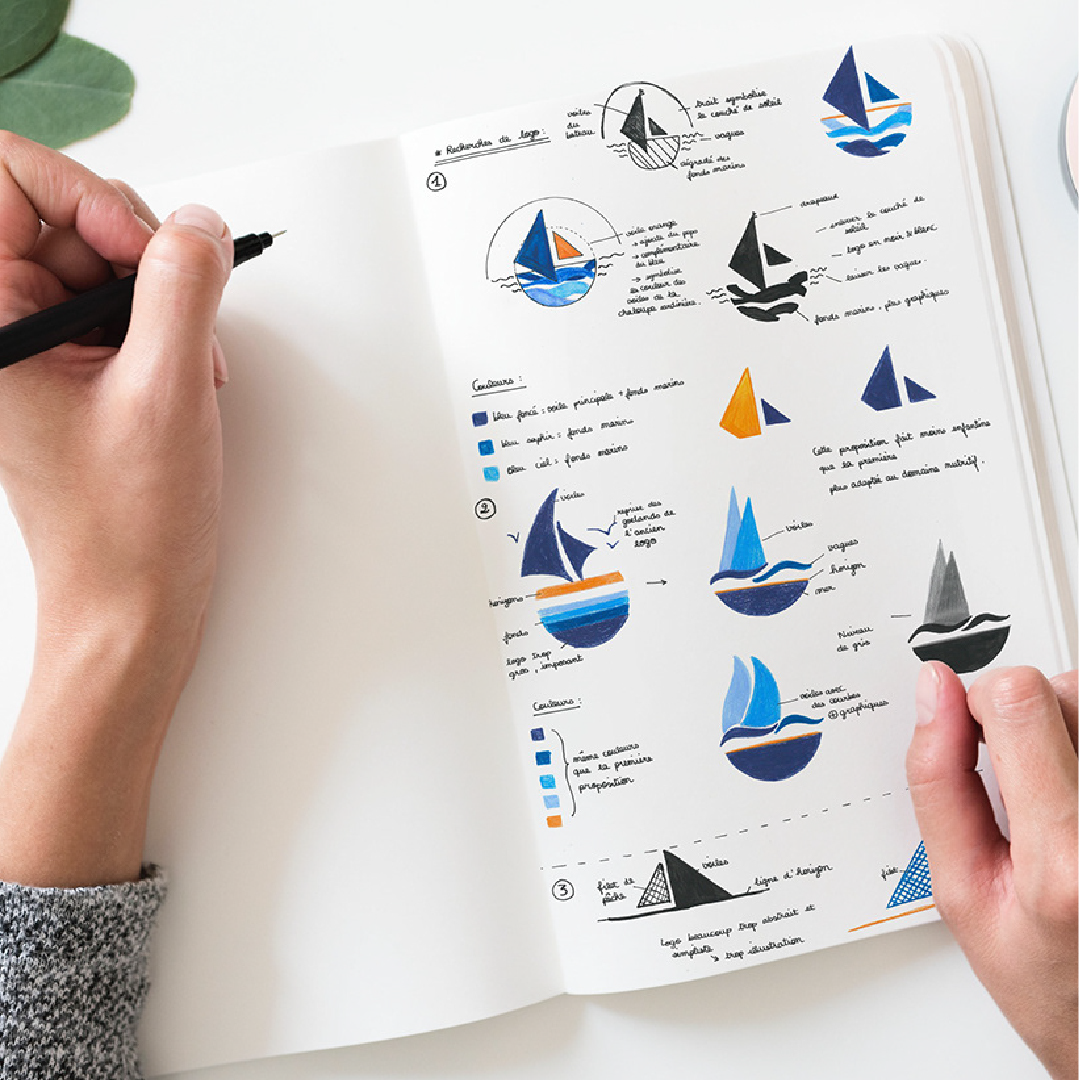 * Recherches de logo :
1
voiles
du
bateau
trait symbolise
le couché de soleil
vagues
dégradé des
fonds marins
voile orange
→ ajoute du peps
→ complémentaire
du bleu
→ symbolise
la couleur des
voiles de la
chaloupe sardinière.
drapeau
le couché de
soleil
logo en noir & blanc
laisser les vagues.
fonds marins, plus graphiques
Couleurs :
bleu foncé : voile principale + fonds marins
bleu saphir : fonds marins
bleu ciel : fonds marins
Cette proposition fait moins enfantine
que la première
plus adaptée au domaine
2
voiles
reprise des
goélands de
l'ancien
logo
horizons
fonds
logo trop
gros, imposant
voiles
vagues
horizon
mer
Niveau
de gris
voiles avec
des courbes
+ graphiques
Couleurs :
même couleurs
que la première
proposition
3
filet de
pêche
voiles
ligne d'horizon
filet
logo beaucoup trop abstrait et
simpliste
→ trop illustration